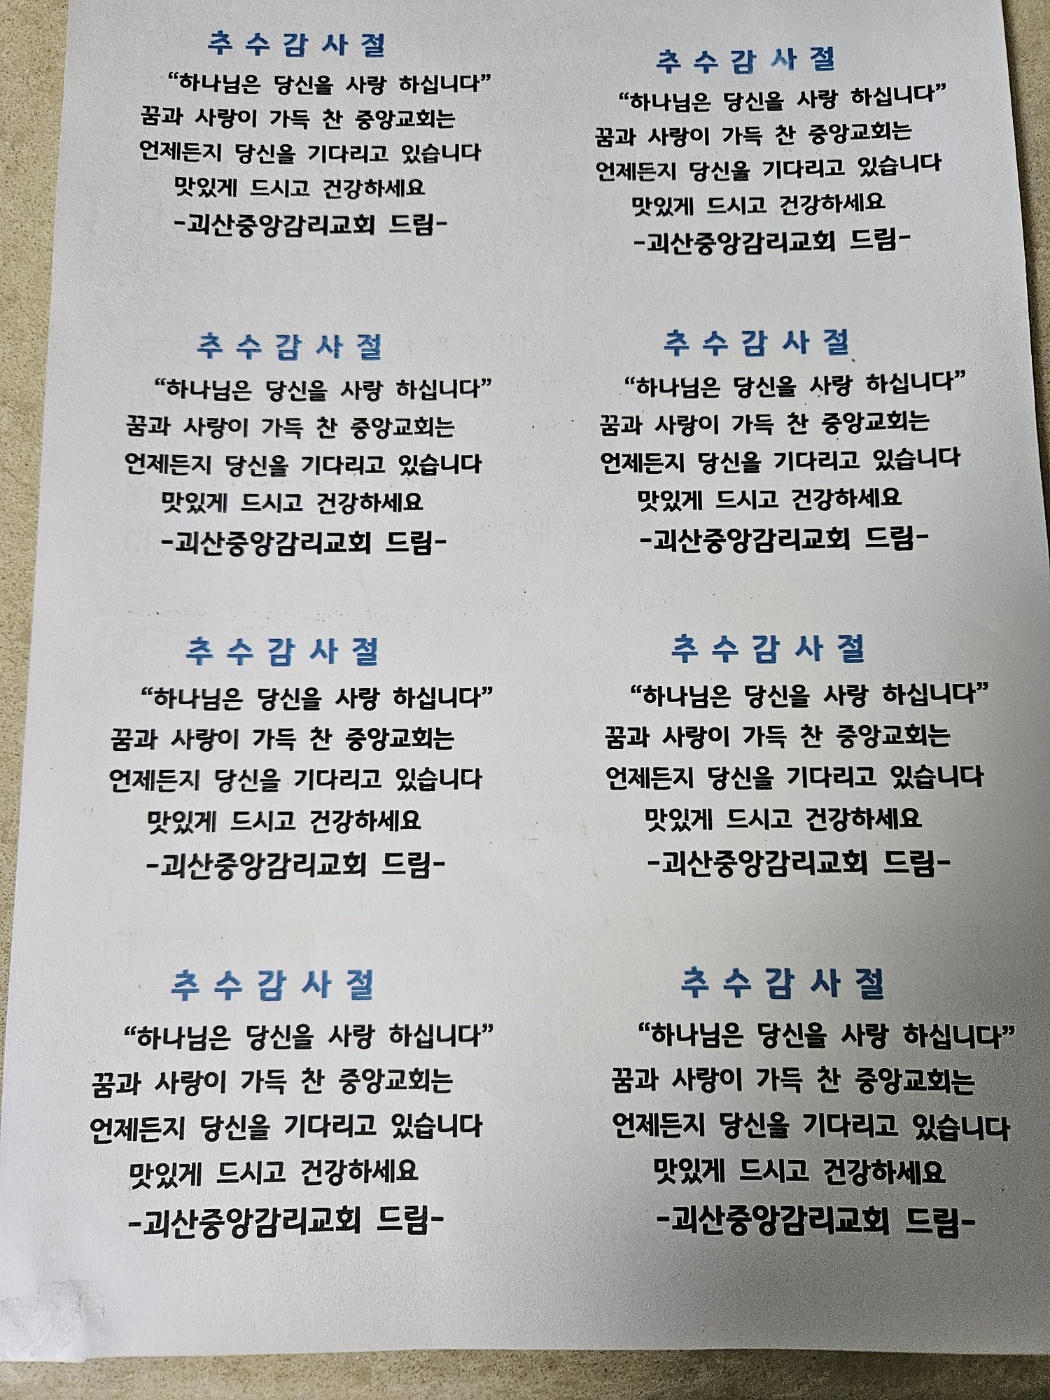 추수감사절
“하나님은 당신을 사랑 하십니다”
꿈과 사랑이 가득 찬 중앙교회는
언제든지 당신을 기다리고 있습니다
맛있게 드시고 건강하세요
-괴산중앙감리교회 드림-
추수감사절
“하나님은 당신을 사랑 하십니다”
꿈과 사랑이 가득 찬 중앙교회는
언제든지 당신을 기다리고 있습니다
맛있게 드시고 건강하세요
-괴산중앙감리교회 드림-
추수감사절
“하나님은 당신을 사랑 하십니다”
꿈과 사랑이 가득 찬 중앙교회는
언제든지 당신을 기다리고 있습니다
맛있게 드시고 건강하세요
-괴산중앙감리교회 드림-
추수감사절
“하나님은 당신을 사랑 하십니다”
꿈과 사랑이 가득 찬 중앙교회는
언제든지 당신을 기다리고 있습니다
맛있게 드시고 건강하세요
-괴산중앙감리교회 드림-
추수감사절
“하나님은 당신을 사랑 하십니다”
꿈과 사랑이 가득 찬 중앙교회는
언제든지 당신을 기다리고 있습니다
맛있게 드시고 건강하세요
-괴산중앙감리교회 드림-
추수감사절
“하나님은 당신을 사랑 하십니다”
꿈과 사랑이 가득 찬 중앙교회는
언제든지 당신을 기다리고 있습니다
맛있게 드시고 건강하세요
-괴산중앙감리교회 드림-
추수감사절
“하나님은 당신을 사랑 하십니다”
꿈과 사랑이 가득 찬 중앙교회는
언제든지 당신을 기다리고 있습니다
맛있게 드시고 건강하세요
-괴산중앙감리교회 드림-
추수감사절
“하나님은 당신을 사랑 하십니다”
꿈과 사랑이 가득 찬 중앙교회는
언제든지 당신을 기다리고 있습니다
맛있게 드시고 건강하세요
-괴산중앙감리교회 드림-